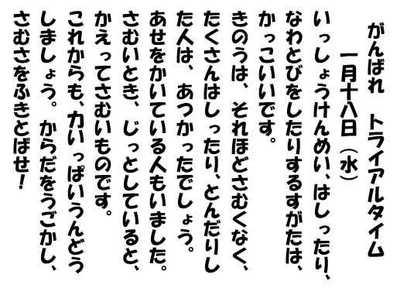 がんばれ　トライアルタイム
一月十八日（水）
いっしょうけんめい、はしったり、
なわとびをしたりするすがたは、
かっこいいです。
きのうは、それほどさむくなく、
たくさんはしったり、とんだりし
た人は、あつかったでしょう。
あせをかいている人もいました。
さむいとき、じっとしていると、
かえってさむいものです。
これからも、力いっぱいうんどう
しましょう。からだをうごかし、
さむさをふきとばせ！